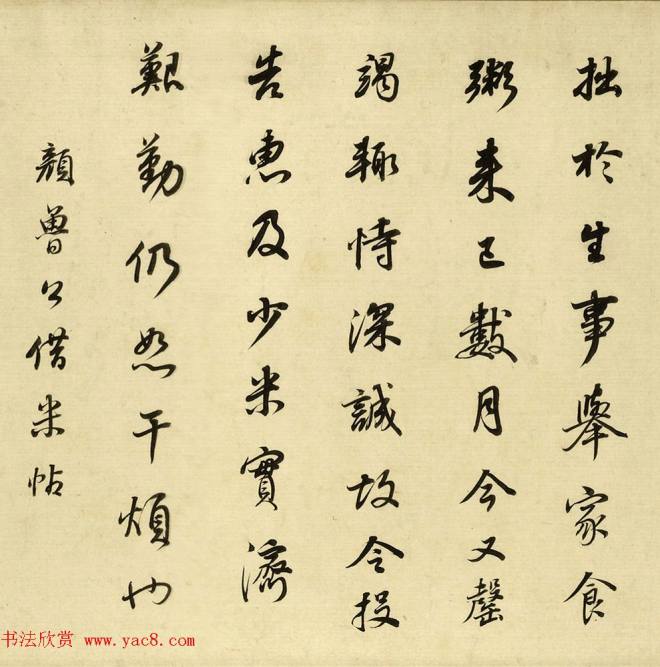 拙於生事舉家食
粥來已數月今又罄
竭輒恃深誠故令投
告惠及少米實濟
艱勤仍恕干煩也
顏魯公借米帖
书法欣赏 www.yac8.com